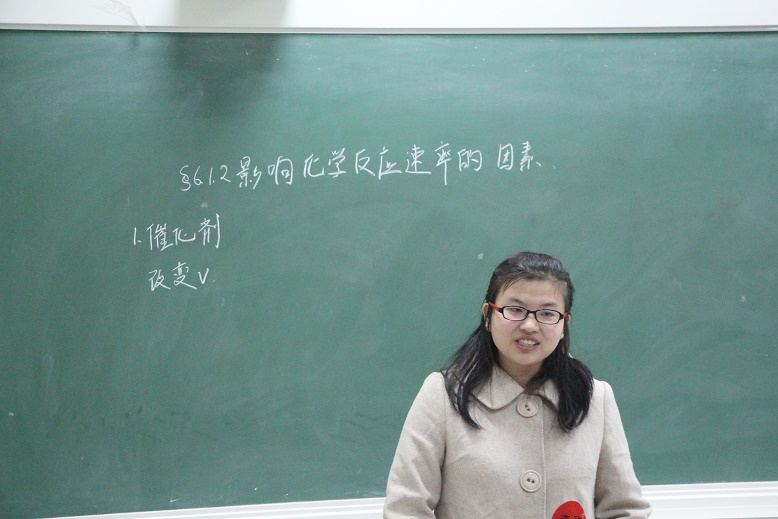 §6.1.2影响化学反应速率的因素
1.催化剂
改变v